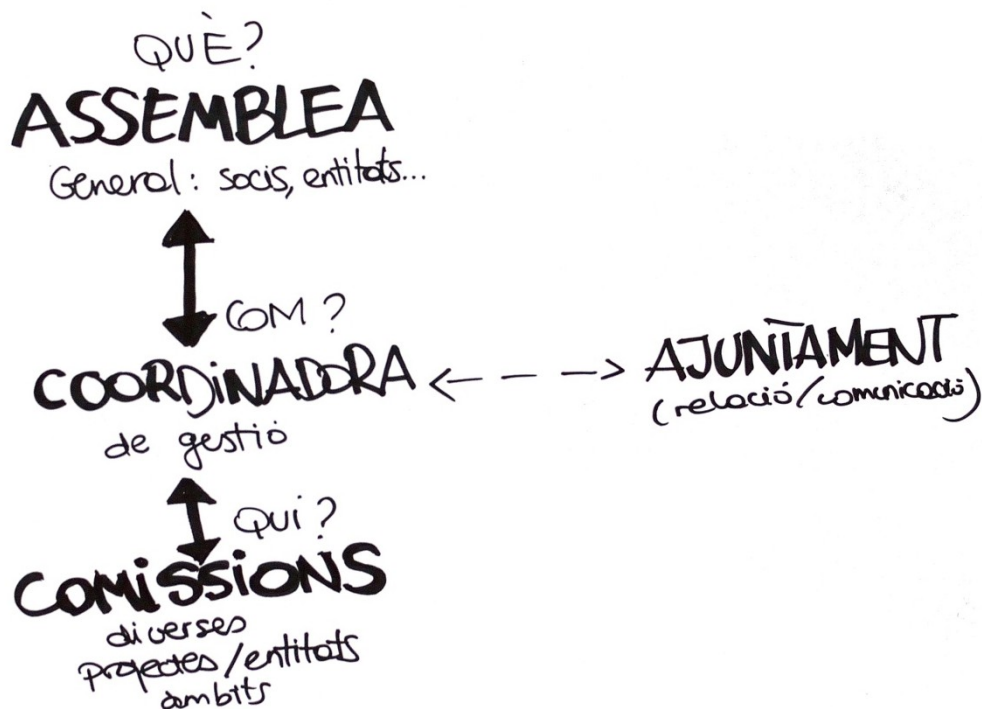 QUÈ?
ASSEMBLEA
General: socis, entitats...
COM?
COORDiNADORA
de gestió
AJUNTAMENT
(relació/comunicació)
Qui?
COMiSSiONS
diverses
projectes/entitats
àmbits